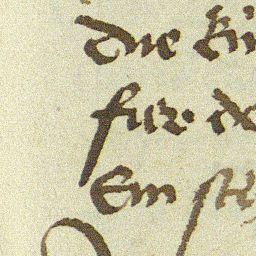 die kü
fur de
Ein ste